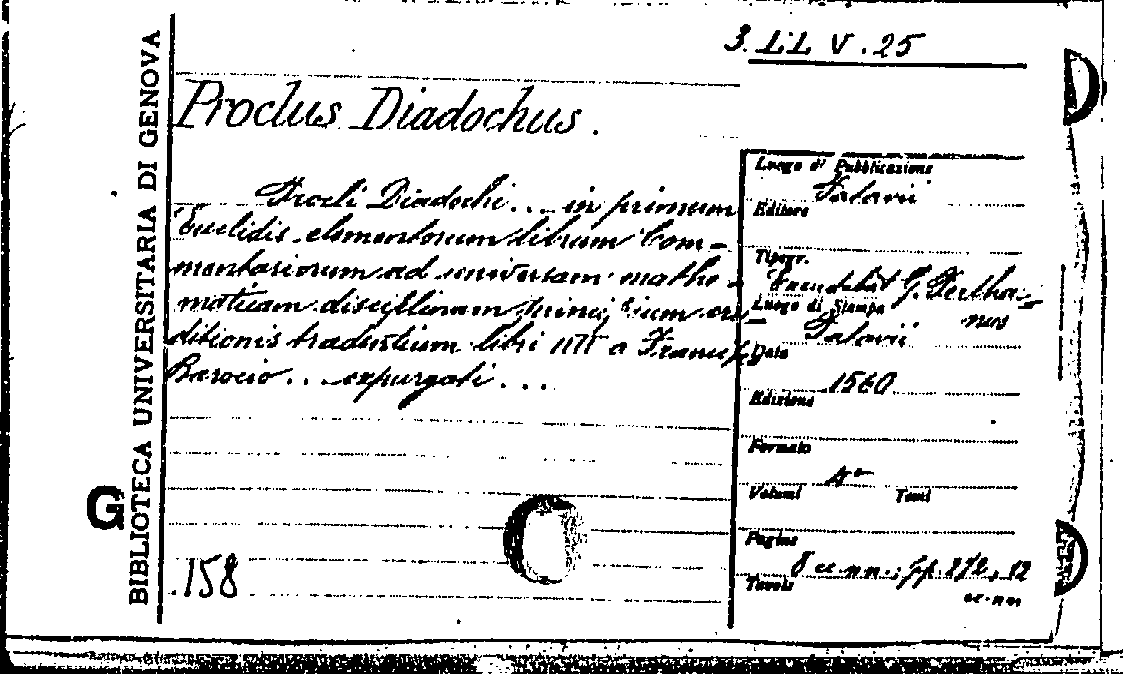 3. LL V. 25
BIBLIOTECA UNIVERSITARIA DI GENOVA
G
Proclus Diadochus.
Procli Diadochi... in primum
Euclidis elementorum librum Com-
mentariorum ad universam mathe-
maticam disciplinam principium eru-
ditionis tradentium libri IIII a Francisco
Barocio... expurgati...
.158
Luogo di Pubblicazione
Patavii
Editore
Tipogr.
Excudebat G. Perchac-
nus
Luogo di Stampa
Patavii
Data
1560
Edizione
Formato
4°
Volumi Tomi
Pagine
8 cc. nn.; pp. 272, 12
cc. nn.
Tavole